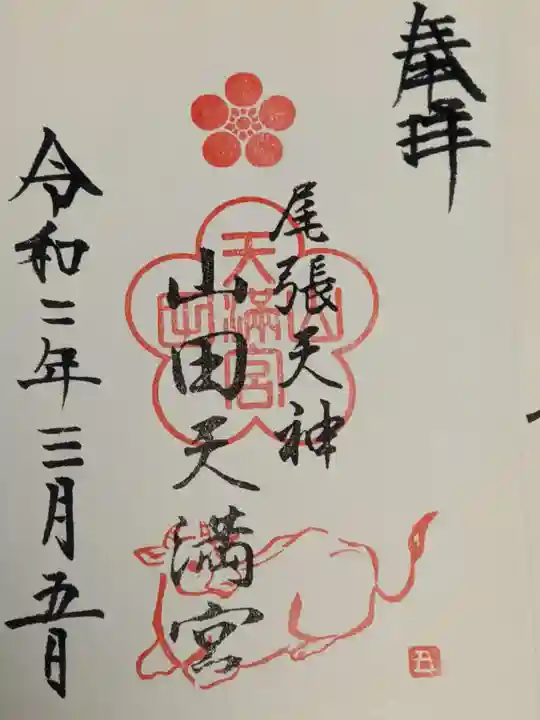 奉拝
尾張天神
山田天満宮
山田
天満宮
令和二年三月五日
丑